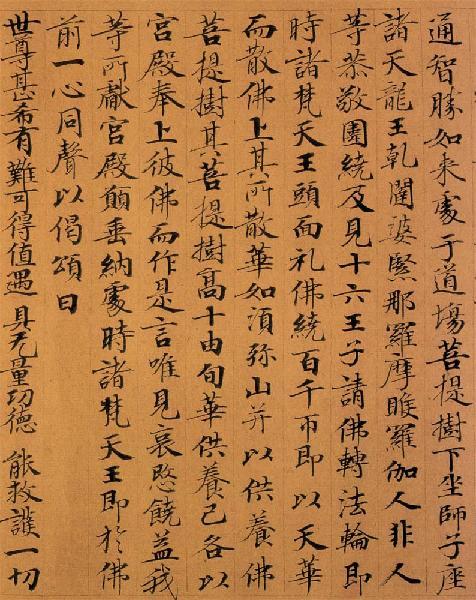 通智勝如来處于道場菩提樹下坐師子座
諸天龍王乹闥婆緊那羅摩睺羅伽人非人
等恭敬圍繞及見十六王子請佛轉法輪即
時諸梵天王頭面礼佛繞百千帀即以天華
而散佛上其所散華如湏弥山并以供養佛
菩提樹其菩提樹髙十由旬華供養已各以
宮殿奉上彼佛而作是言唯見哀愍饒益我
等所獻宮殿願垂納處時諸梵天王即於佛
前一心同聲以偈頌曰
世尊甚希有難可得值遇具无量功德能救護一切